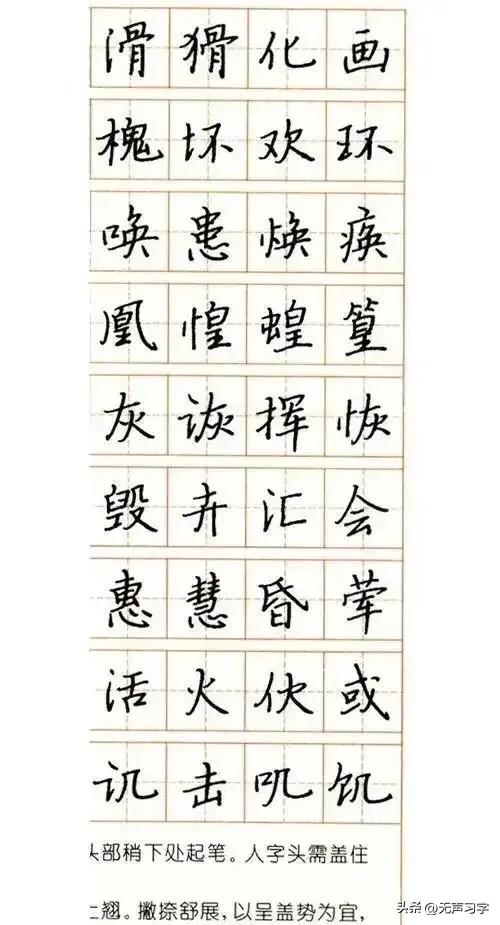 滑猾化画
槐坏欢环
唤患焕痪
凰惶蝗篁
灰诙挥恢
毁卉汇会
惠慧昏荤
活火伙或
讥击叽饥
部稍下处起笔。人字头需盖住
翘。撇捺舒展，以呈盖势为宜，
头条 @无声习字